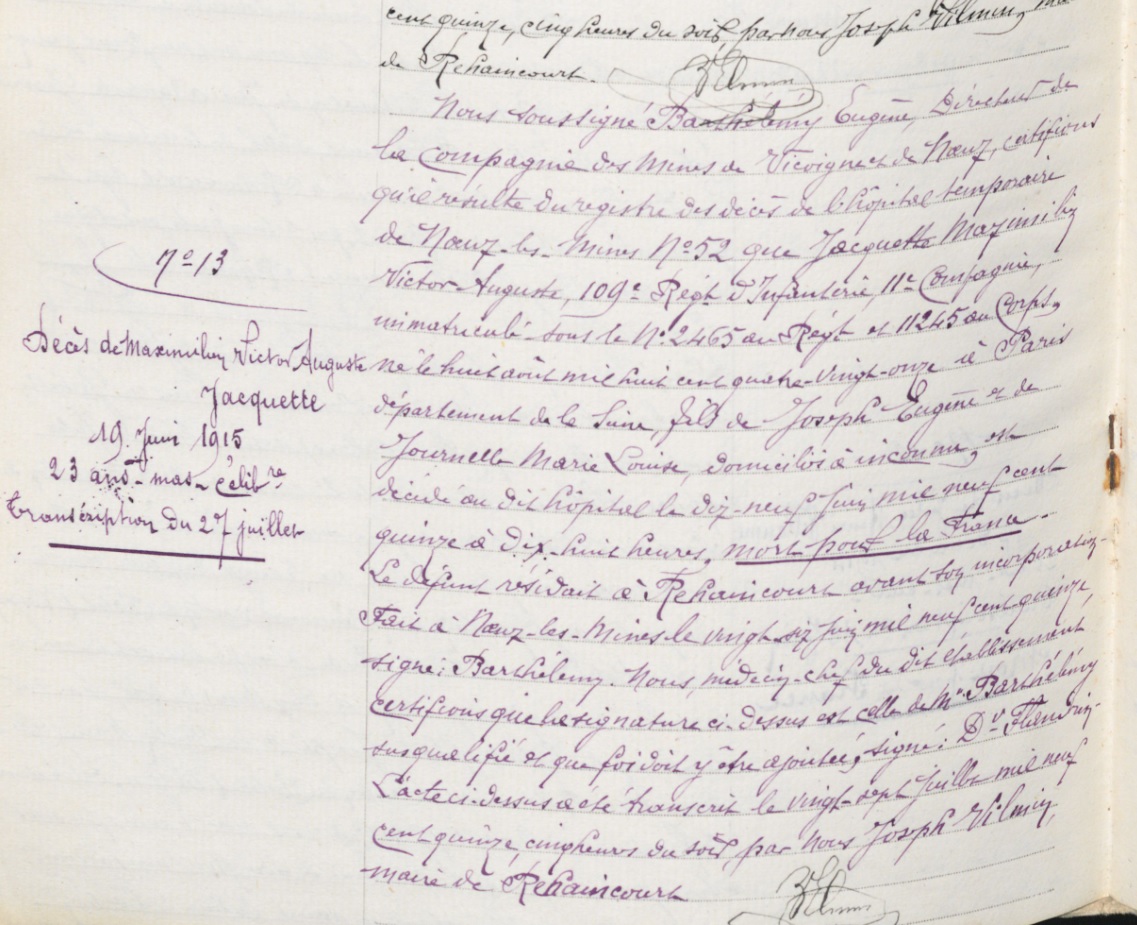 cent quinze, cinq heures du soir par nous Joseph Vilmin,
de Rehaincourt.
Vilmin
Nous soussigné Barthélémy Eugène, Directeur de
la Compagnie des Mines de Vicoigne et de Nœux, certifions
qu'il résulte du registre des décès de l'hôpital temporaire
de Nœux-les-Mines No 52 que Jacquette Maximilien
Victor Auguste, 109e Régt d'Infanterie, 11e Compagnie,
immatriculé sous le No 2465 au Régt et 11245 au Corps,
né le huit août mil huit cent quatre-vingt-onze à Paris
département de la Seine, fils de Joseph Eugène et de
Journelle Marie Louise, domiciliés à inconnu, est
décédé au dit hôpital le dix-neuf Juin mil neuf cent
quinze à dix-huit heures, mort pour la France.
Le défunt résidait à Rehaincourt avant son incorporation.
Fait à Nœux-les-Mines le vingt-six juin mil neuf cent quinze,
signé: Barthélemy. Nous, médecin-chef du dit établissement
certifions que la signature ci-dessus est celle de Mr Barthélémy
susqualifié et que foi doit y être ajoutée, signé: Dr Flandrin.
L'acte ci-dessus a été transcrit le vingt-sept juillet mil neuf
cent quinze, cinq heures du soir, par Nous Joseph Vilmin,
maire de Rehaincourt
Vilmin
No 13
Décès de Maximilien Victor Auguste
Jacquette
19 Juin 1915
23 ans - mas - célibre
transcription du 27 juillet